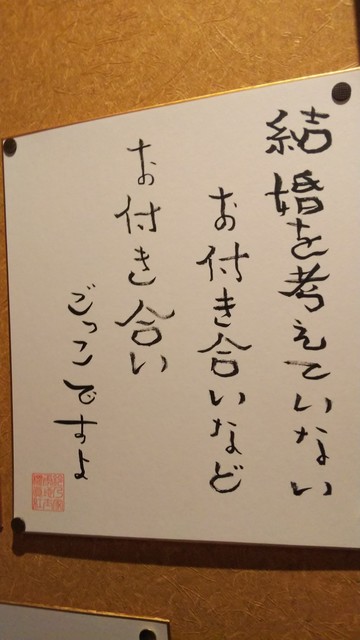 結婚を考えていない
お付き合いなど
お付き合い
ごっこですよ